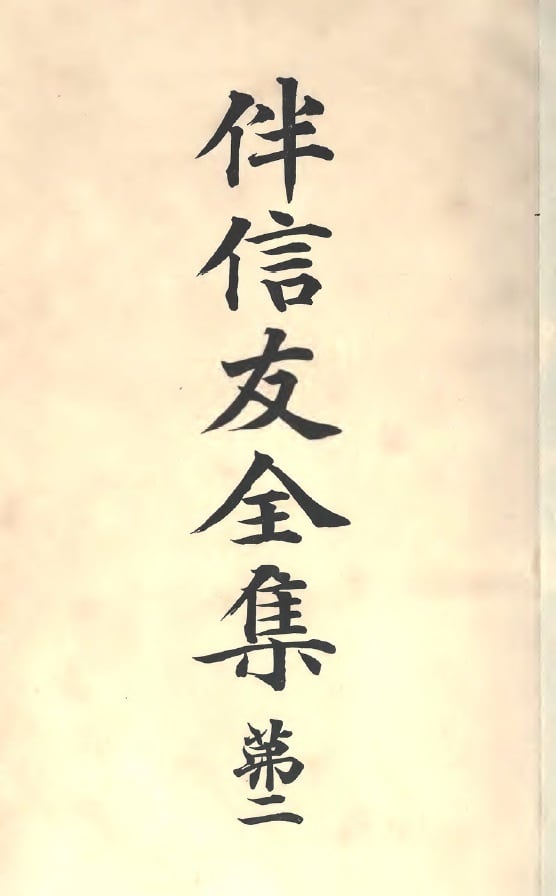 伴信友全集 第二